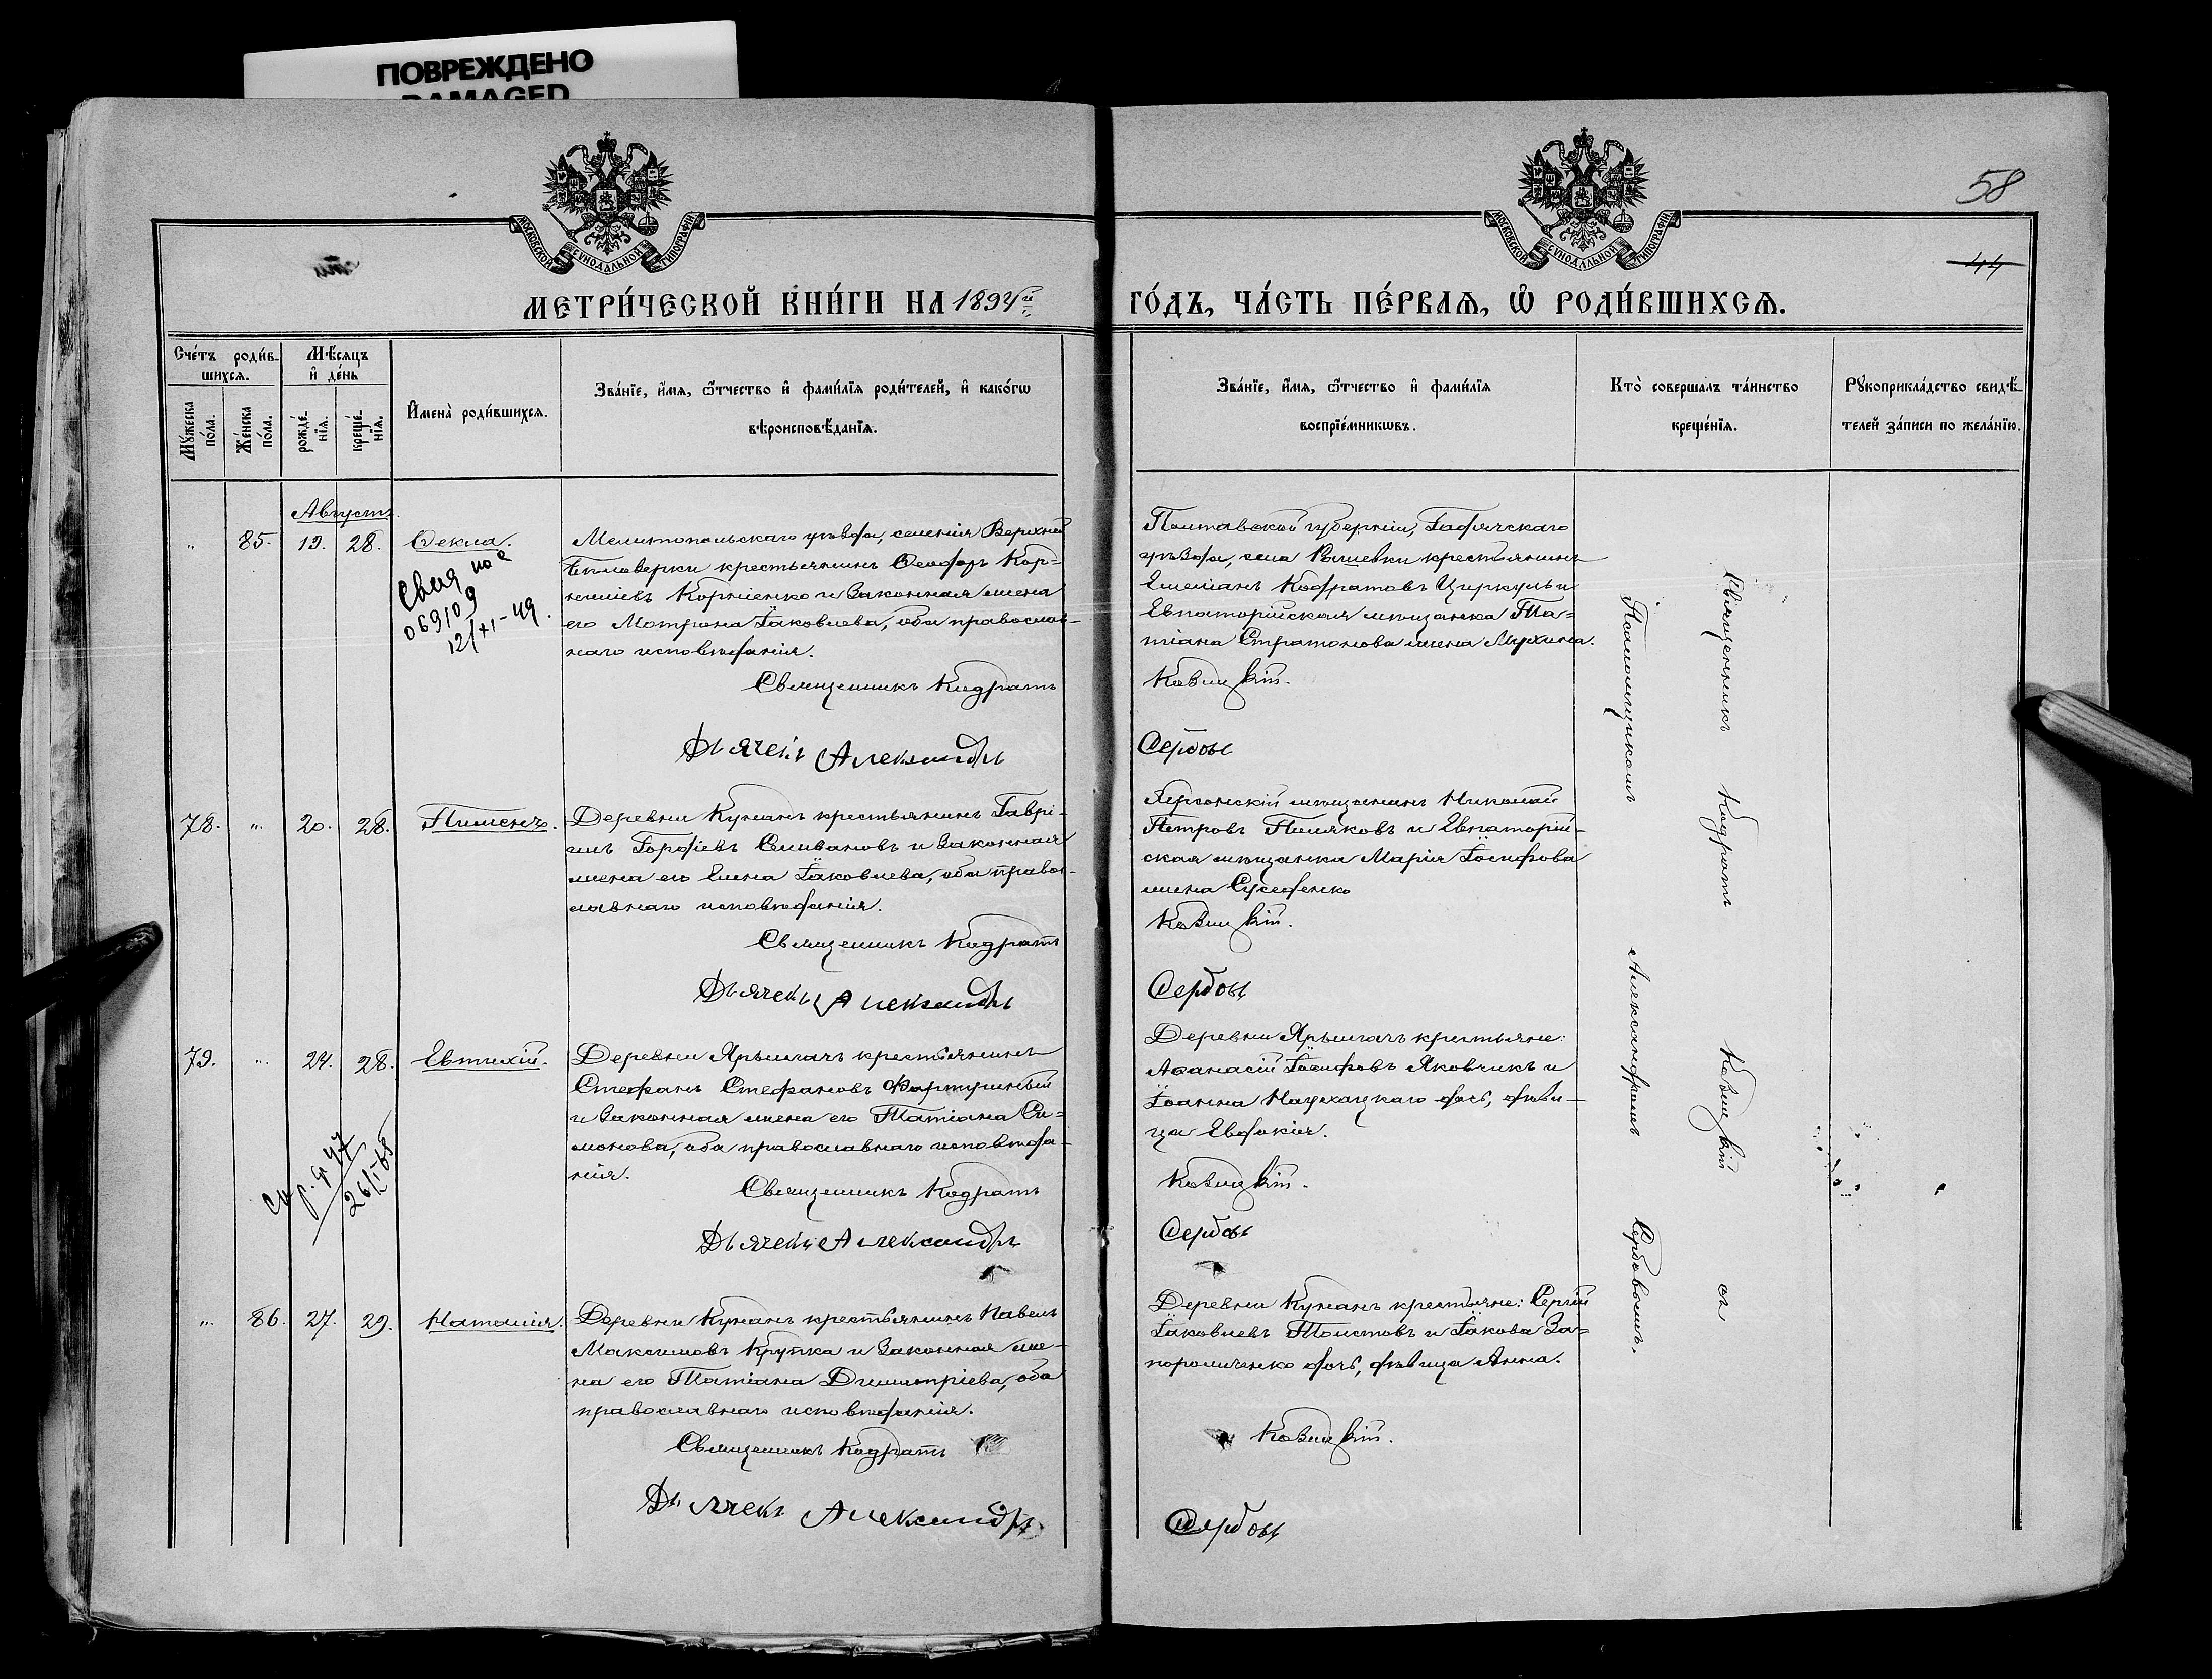 ПОВРЕЖДЕНО
DAMAGED
МОСКОВСКОЙ СѴНОДАЛЬНОЙ ТИПОГРАФІИ
МОСКОВСКОЙ СѴНОДАЛЬНОЙ ТИПОГРАФІИ
58
44
МЕТРИ́ЧЕСКОЙ КНИ́ГИ НА
ГО́ДЪ, ЧА́СТЬ ПЕ́РВАѦ, Ѡ҆ РОДИ́ВШИХСѦ.
Сче́тъ роди́в-
шихсѧ.
Мꙋ́жеска по́ла.
Же́нска по́ла.
Мѣ́сѧцъ
и҆ де́нь
рожде́-
нїѧ.
креще́-
нїѧ.
И҆мена̀ роди́вшихсѧ.
Зва́нїе, и҆́мѧ, ѻ҆́тчество и҆ фами́лїѧ роди́телей, и҆ како́гѡ
вѣроисповѣ́данїѧ.
Зва́нїе, и҆́мѧ, ѻ҆́тчество и҆ фами́лїѧ
воспрїе́мникѡвъ.
Кто̀ соверша́лъ та́инство
креще́нїѧ.
Рꙋкоприкла́дство свидѣ́-
телей за́писи по жела́нїю.
Августъ.
„ 85. 19. 28. Ѳекла.
069109
12/XI-49.
Мелитопольскаго уѣзда, селенія Верхней
Бѣлозерки крестьянинъ Ѳеодоръ Кор-
ниліевъ Корніенко и законная жена
его Матрона Іаковлева, оба православ-
наго исповѣданія.
Священникъ Кодратъ
Дьячекъ Александръ
Полтавской губерніи, Гадячскаго
уѣзда, села Рашевки крестьянинъ
Емеліанъ Кодратовъ Циркуль и
Евпаторійская мѣщанка Та-
тіана Стратонова жена Мухина.
Сербовъ
78. „ 20. 28. Пименъ.
Деревни Кунанъ крестьянинъ Гаврі-
илъ Гордіевъ Селивановъ и законная
жена его Елена Іаковлева, оба право-
славнаго исповѣданія.
Священникъ Кодратъ
Дьячекъ Александръ
Херсонскій мѣщанинъ Николай
Петровъ Поляковъ и Евпаторій-
ская мѣщанка Марія Іосифова
жена
Сербовъ
79. „ 24. 28. Евтихій.
Деревни Ярылгачъ крестьянинъ
Стефанъ Стефановъ
и законная жена его Татіана Си-
монова, оба православнаго исповѣда-
нія.
Священникъ Кодратъ
Дьячекъ Александръ
Деревни Ярылгачъ крестьяне:
Аѳанасій Іосифовъ Яковчикъ и
Іоанна дочь, дѣви-
ца Евдокія.
Сербовъ
„ 86. 27. 29. Наталія.
Деревни Кунанъ крестьянинъ Павелъ
Максимовъ Крупка и законная же-
на его Татіана Димитріева, оба
православнаго исповѣданія.
Священникъ Кодратъ
Дьячекъ Александръ
Деревни Кунанъ крестьяне: Сергій
Іаковлевъ Толстовъ и Іакова За-
порожченко дочь, дѣвица Анна.
Сербовъ
Священникъ Кодратъ съ
Псаломщикомъ Александромъ Сербовымъ.